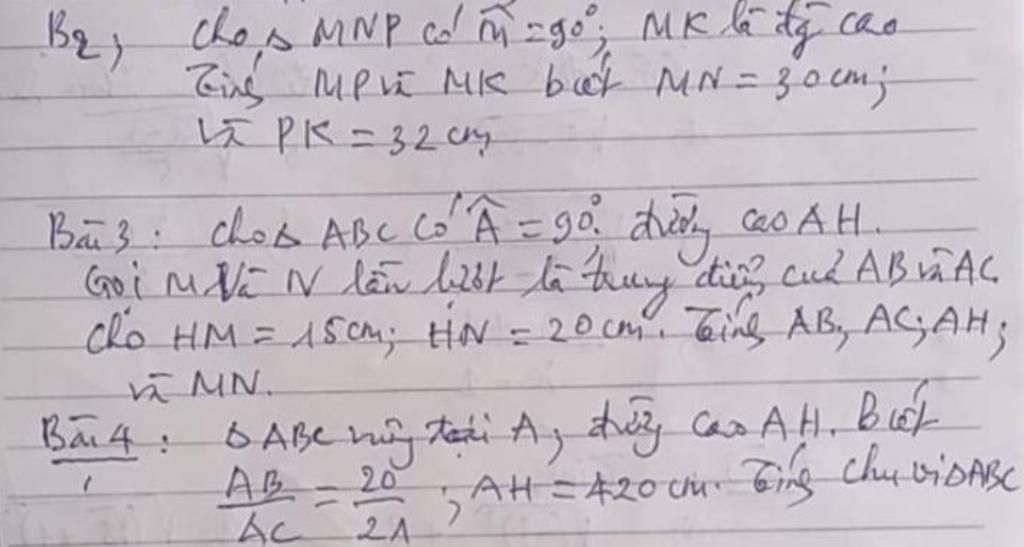 B2, Cho Δ MNP có M̂ = 90°; MK là đg cao
Tính MP và MK biết MN = 30cm;
và PK = 32cm
Bài 3 : Cho Δ ABC có Â = 90°. đường cao AH.
Gọi M và N lần lượt là trung điểm của AB và AC
Cho HM = 15cm; HN = 20cm. Tính AB, AC; AH;
và MN.
Bài 4 : Δ ABC vuông tại A, đường cao AH. Biết
AB/AC = 20/21 ; AH = 420cm. Tính Chu vi ΔABC